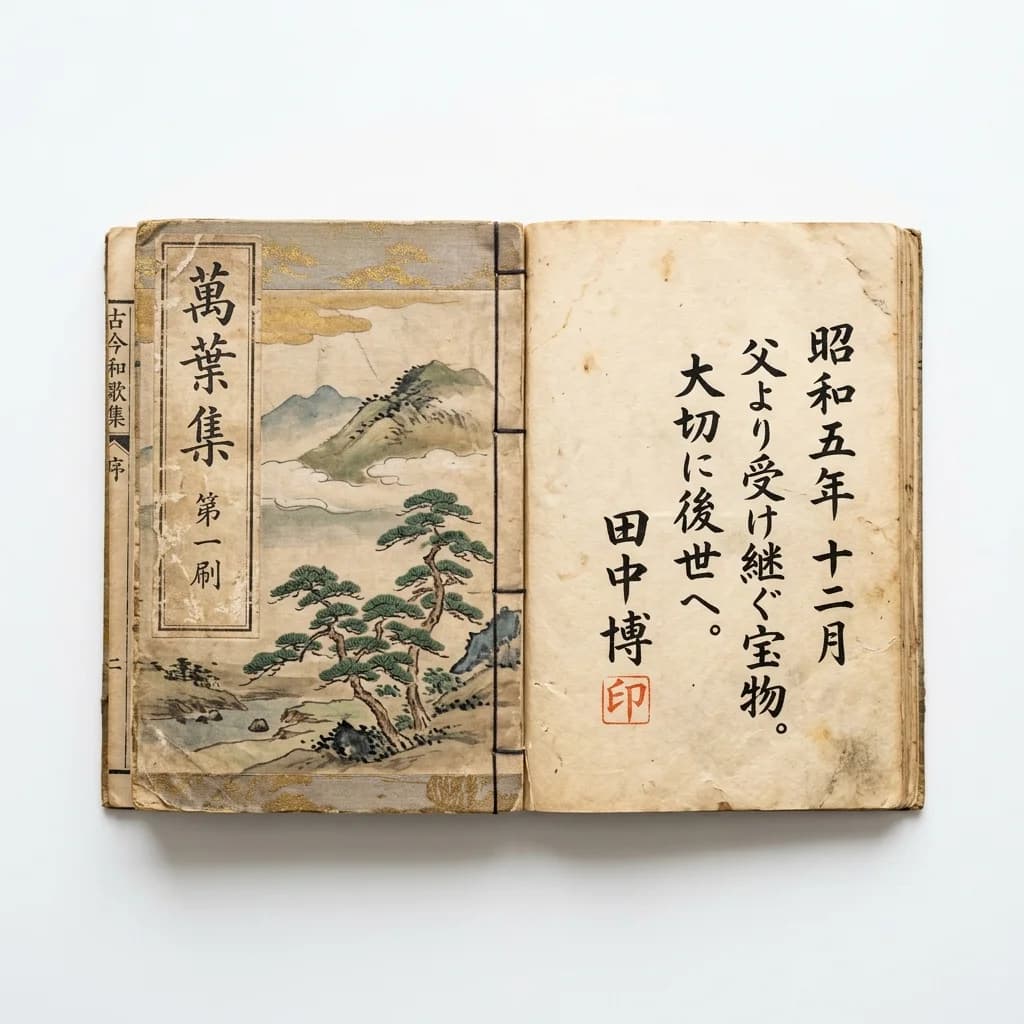 萬葉集
第一刷
古今和歌集
序
二
昭和五年 十二月
父より受け継ぐ宝物。
大切に後世へ。
田中博
印